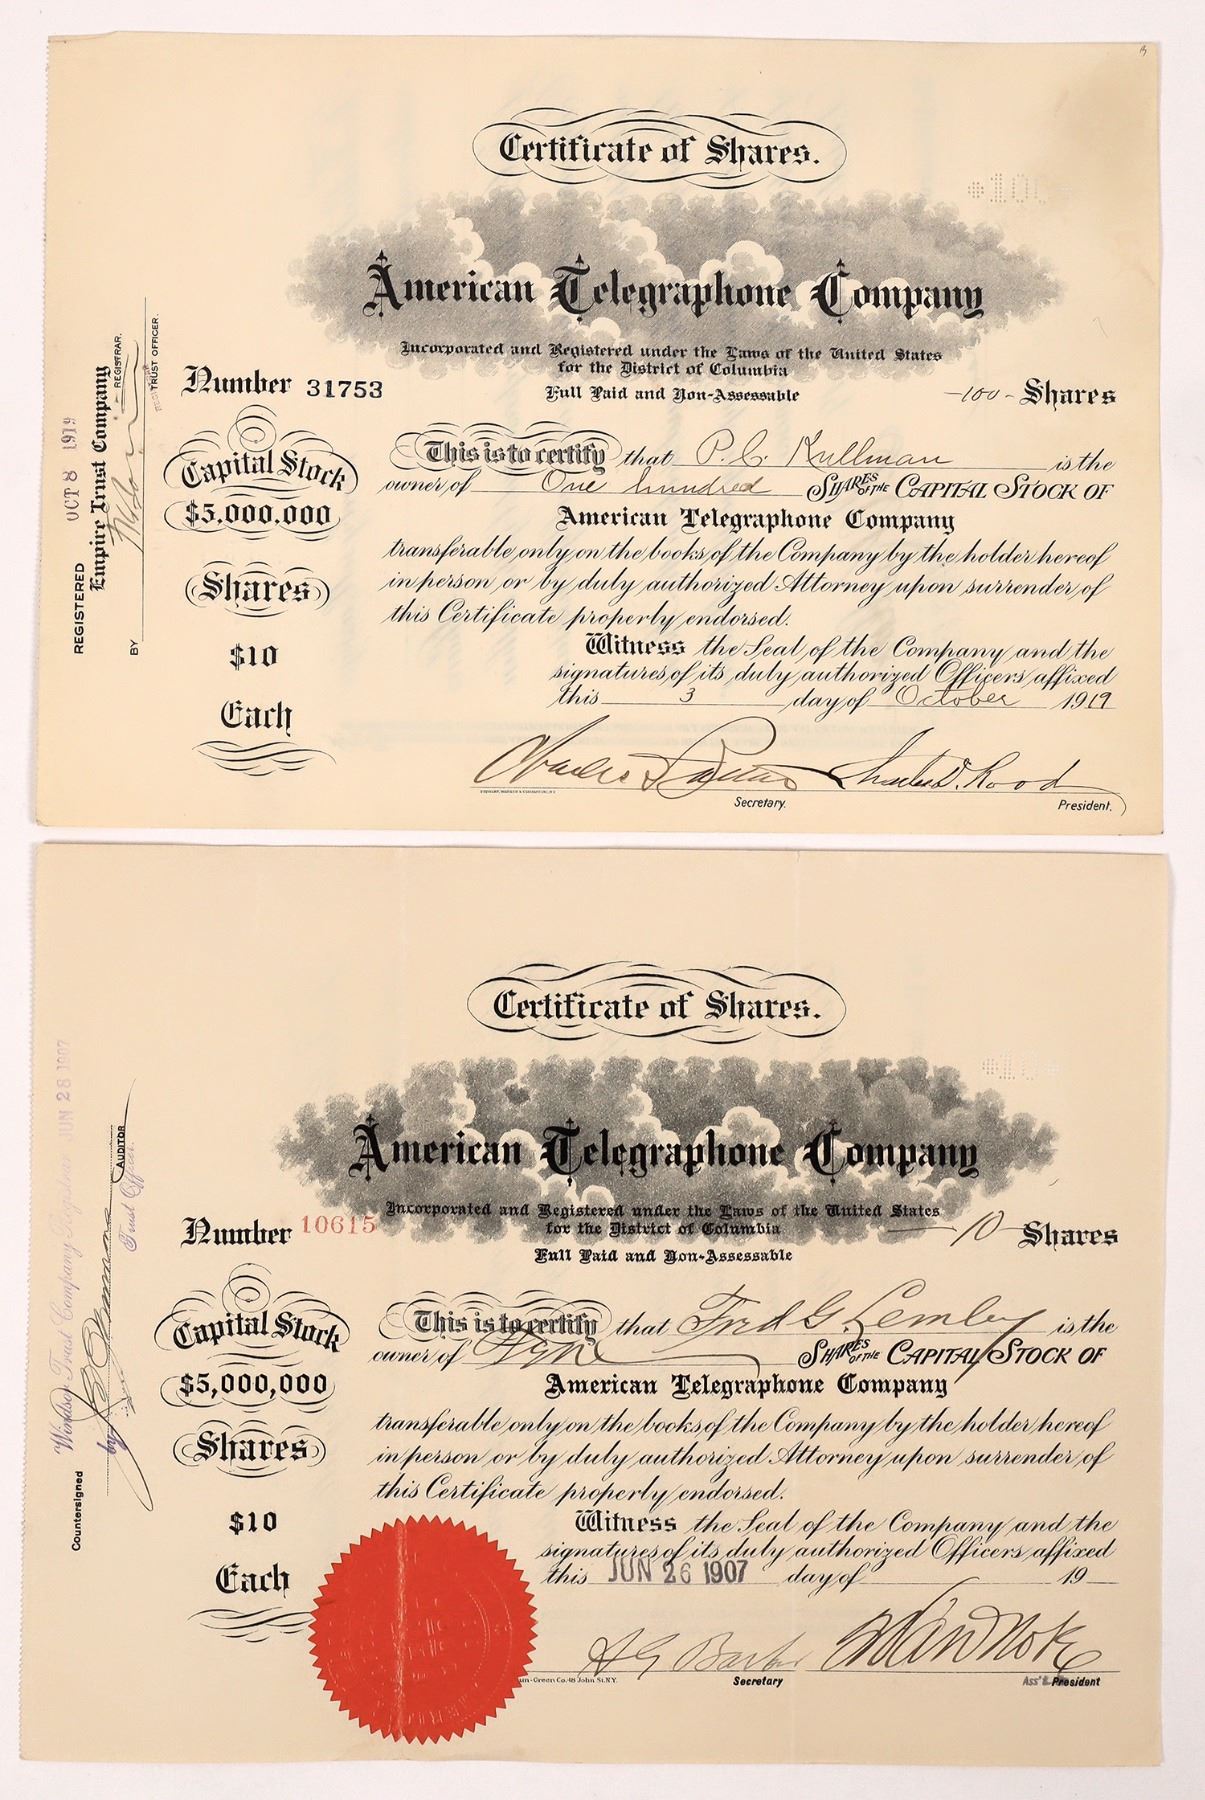 Certificate of Shares.
*100*
American Telegraphone Company
Incorporated and Registered under the Laws of the United States
for the District of Columbia
Full Paid and Non-Assessable
Number 31753
-100- Shares
REGISTERED OCT 8 1919
Empire Trust Company
REGISTRAR.
BY
TRUST OFFICER.
Capital Stock
$5.000.000
Shares
$10
Each
This is to certify that P. C. Kullman is the
owner of One hundred SHARES OF THE CAPITAL STOCK OF
American Telegraphone Company
transferable only on the books of the Company by the holder hereof
in person or by duly authorized Attorney upon surrender of
this Certificate properly endorsed.
Witness the Seal of the Company and the
signatures of its duly authorized Officers affixed
this 3 day of October 1919
Charles D. Rood
Secretary.
President.
Certificate of Shares.
*10*
American Telegraphone Company
Incorporated and Registered under the Laws of the United States
for the District of Columbia
Full Paid and Non-Assessable
Number 10615
10 Shares
Countersigned
Windsor Trust Company Registrar JUN 28 1907
by
AUDITOR
Trust Officer.
Capital Stock
$5,000,000
Shares
$10
Each
This is to certify that Fred G. Lemley is the
owner of SHARES OF THE CAPITAL STOCK OF
American Telegraphone Company
transferable only on the books of the Company by the holder hereof
in person or by duly authorized Attorney upon surrender of
this Certificate properly endorsed.
Witness the Seal of the Company and the
signatures of its duly authorized Officers affixed
this JUN 26 1907 day of 19
-Green Co. 48 John St. N.Y.
Secretary
Ass't President